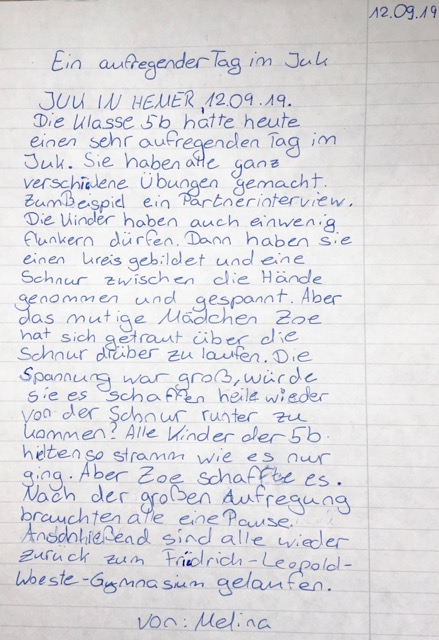 12.09.19
Ein aufregender Tag im Juk
JUK IN HEMER, 12.09.19.
Die Klasse 5b hatte heute
einen sehr aufregenden Tag im
Juk. Sie haben alle ganz
verschidene Übungen gemacht.
Zum Beispiel ein Partnerinterview.
Die Kinder haben auch einwenig
flunkern dürfen. Dann haben sie
einen Kreis gebildet und eine
Schnur zwischen die Hände
genommen und gespannt. Aber
das mutige Mädchen Zoe
hat sich getraut über die
Schnur drüber zu laufen. Die
Spannung war groß, würde
sie es schaffen heile wieder
von der Schnur runter zu
kommen? Alle Kinder der 5b
hilten so stramm wie es nur
ging. Aber Zoe schaffte es.
Nach der großen Aufregung
brauchten alle eine Pause.
Anschließend sind alle wieder
zurück zum Friedrich-Leopold-
Woeste-Gymnasium gelaufen.
von: Melina